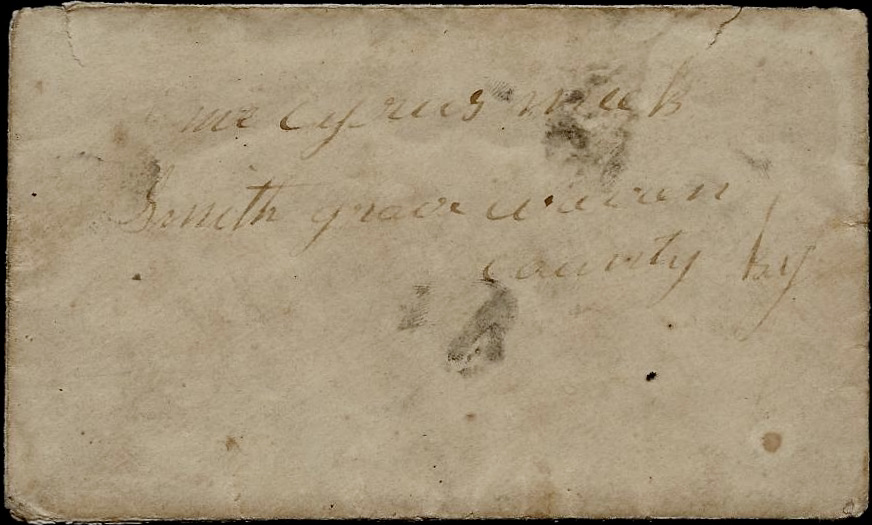 mr Cyrus meek
Smith grove waren
county ky